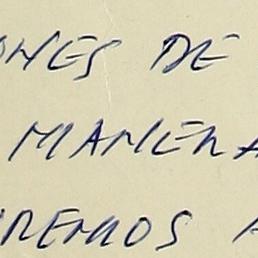 ONES DE
MANERA
REMOS A